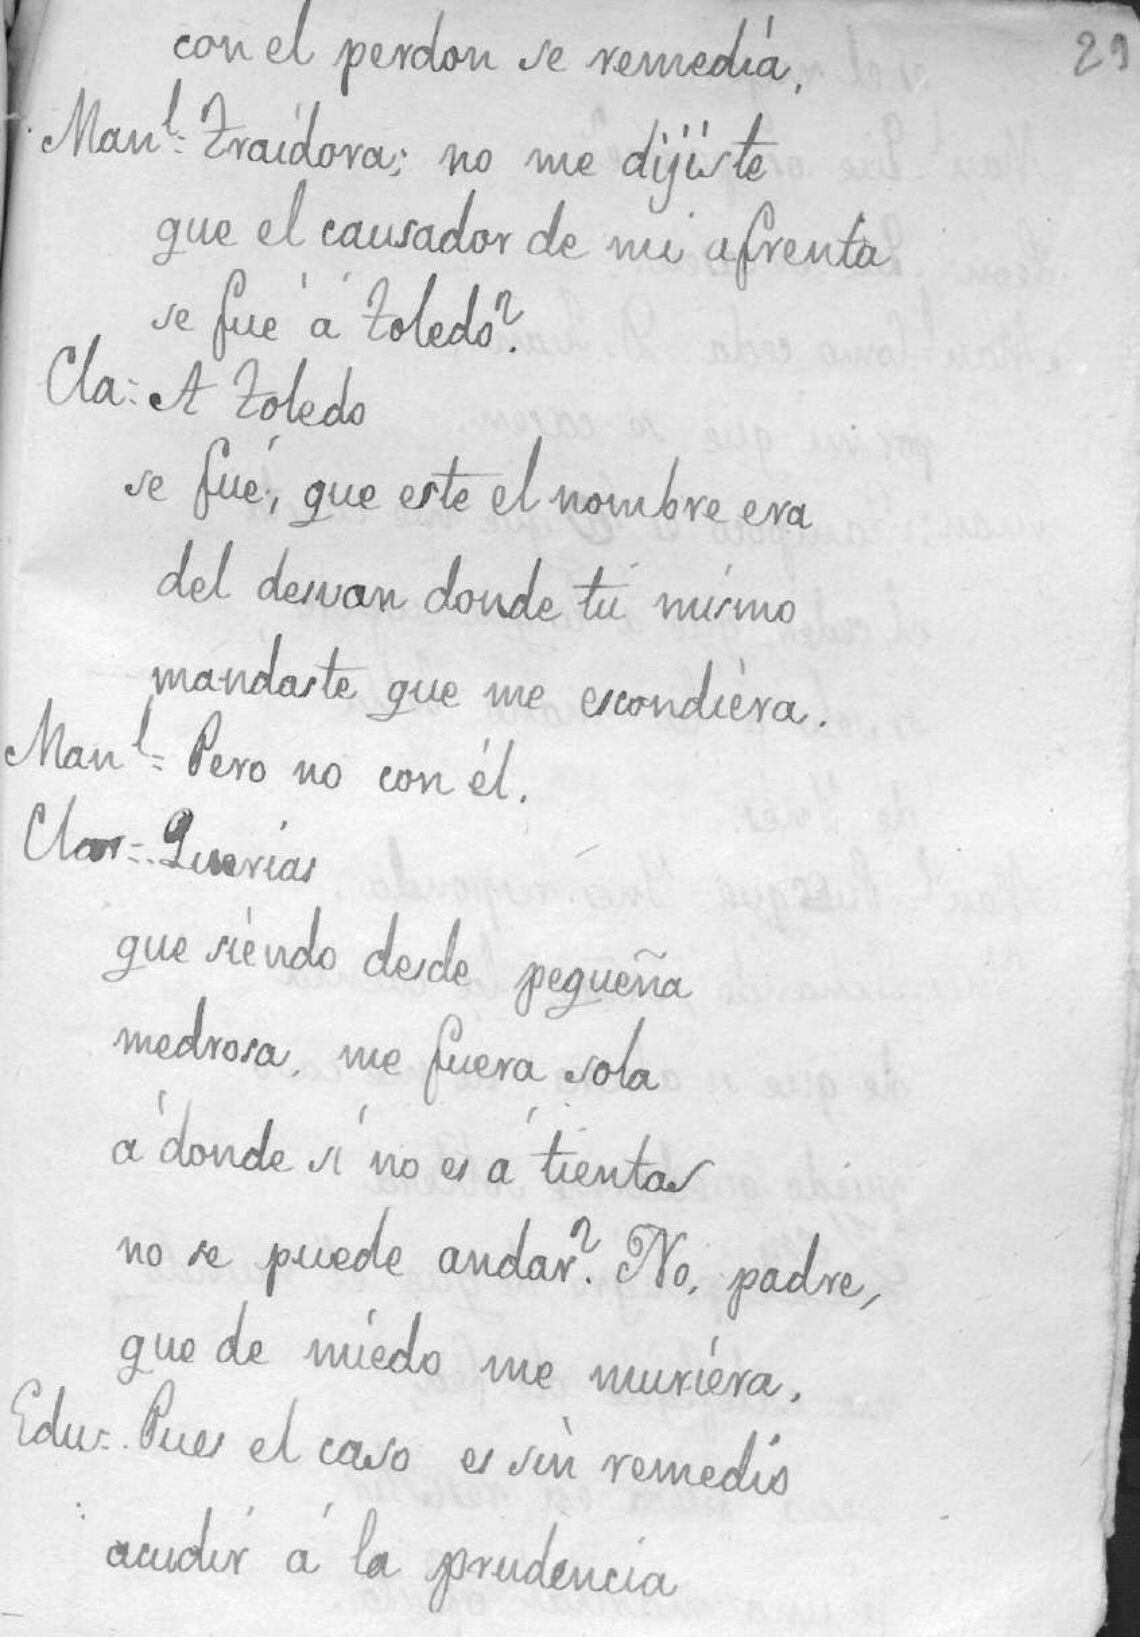 29
con el perdon se remedia,
Man.l = Traidora; no me dijiste
que el causador de mi afrenta
se fué á Toledo?
Cla: A Toledo
se fué, que este el nombre era
del desvan donde tú mismo
mandaste que me escondiera.
Man.l = Pero no con él.
Clar = Querias
que siendo desde pequeña
medrosa, me fuera sola
á donde si no es á tientas
no se puede andar? No, padre,
que de miedo me muriera.
Edu: Pues el caso es sin remedio
acudir á la prudencia